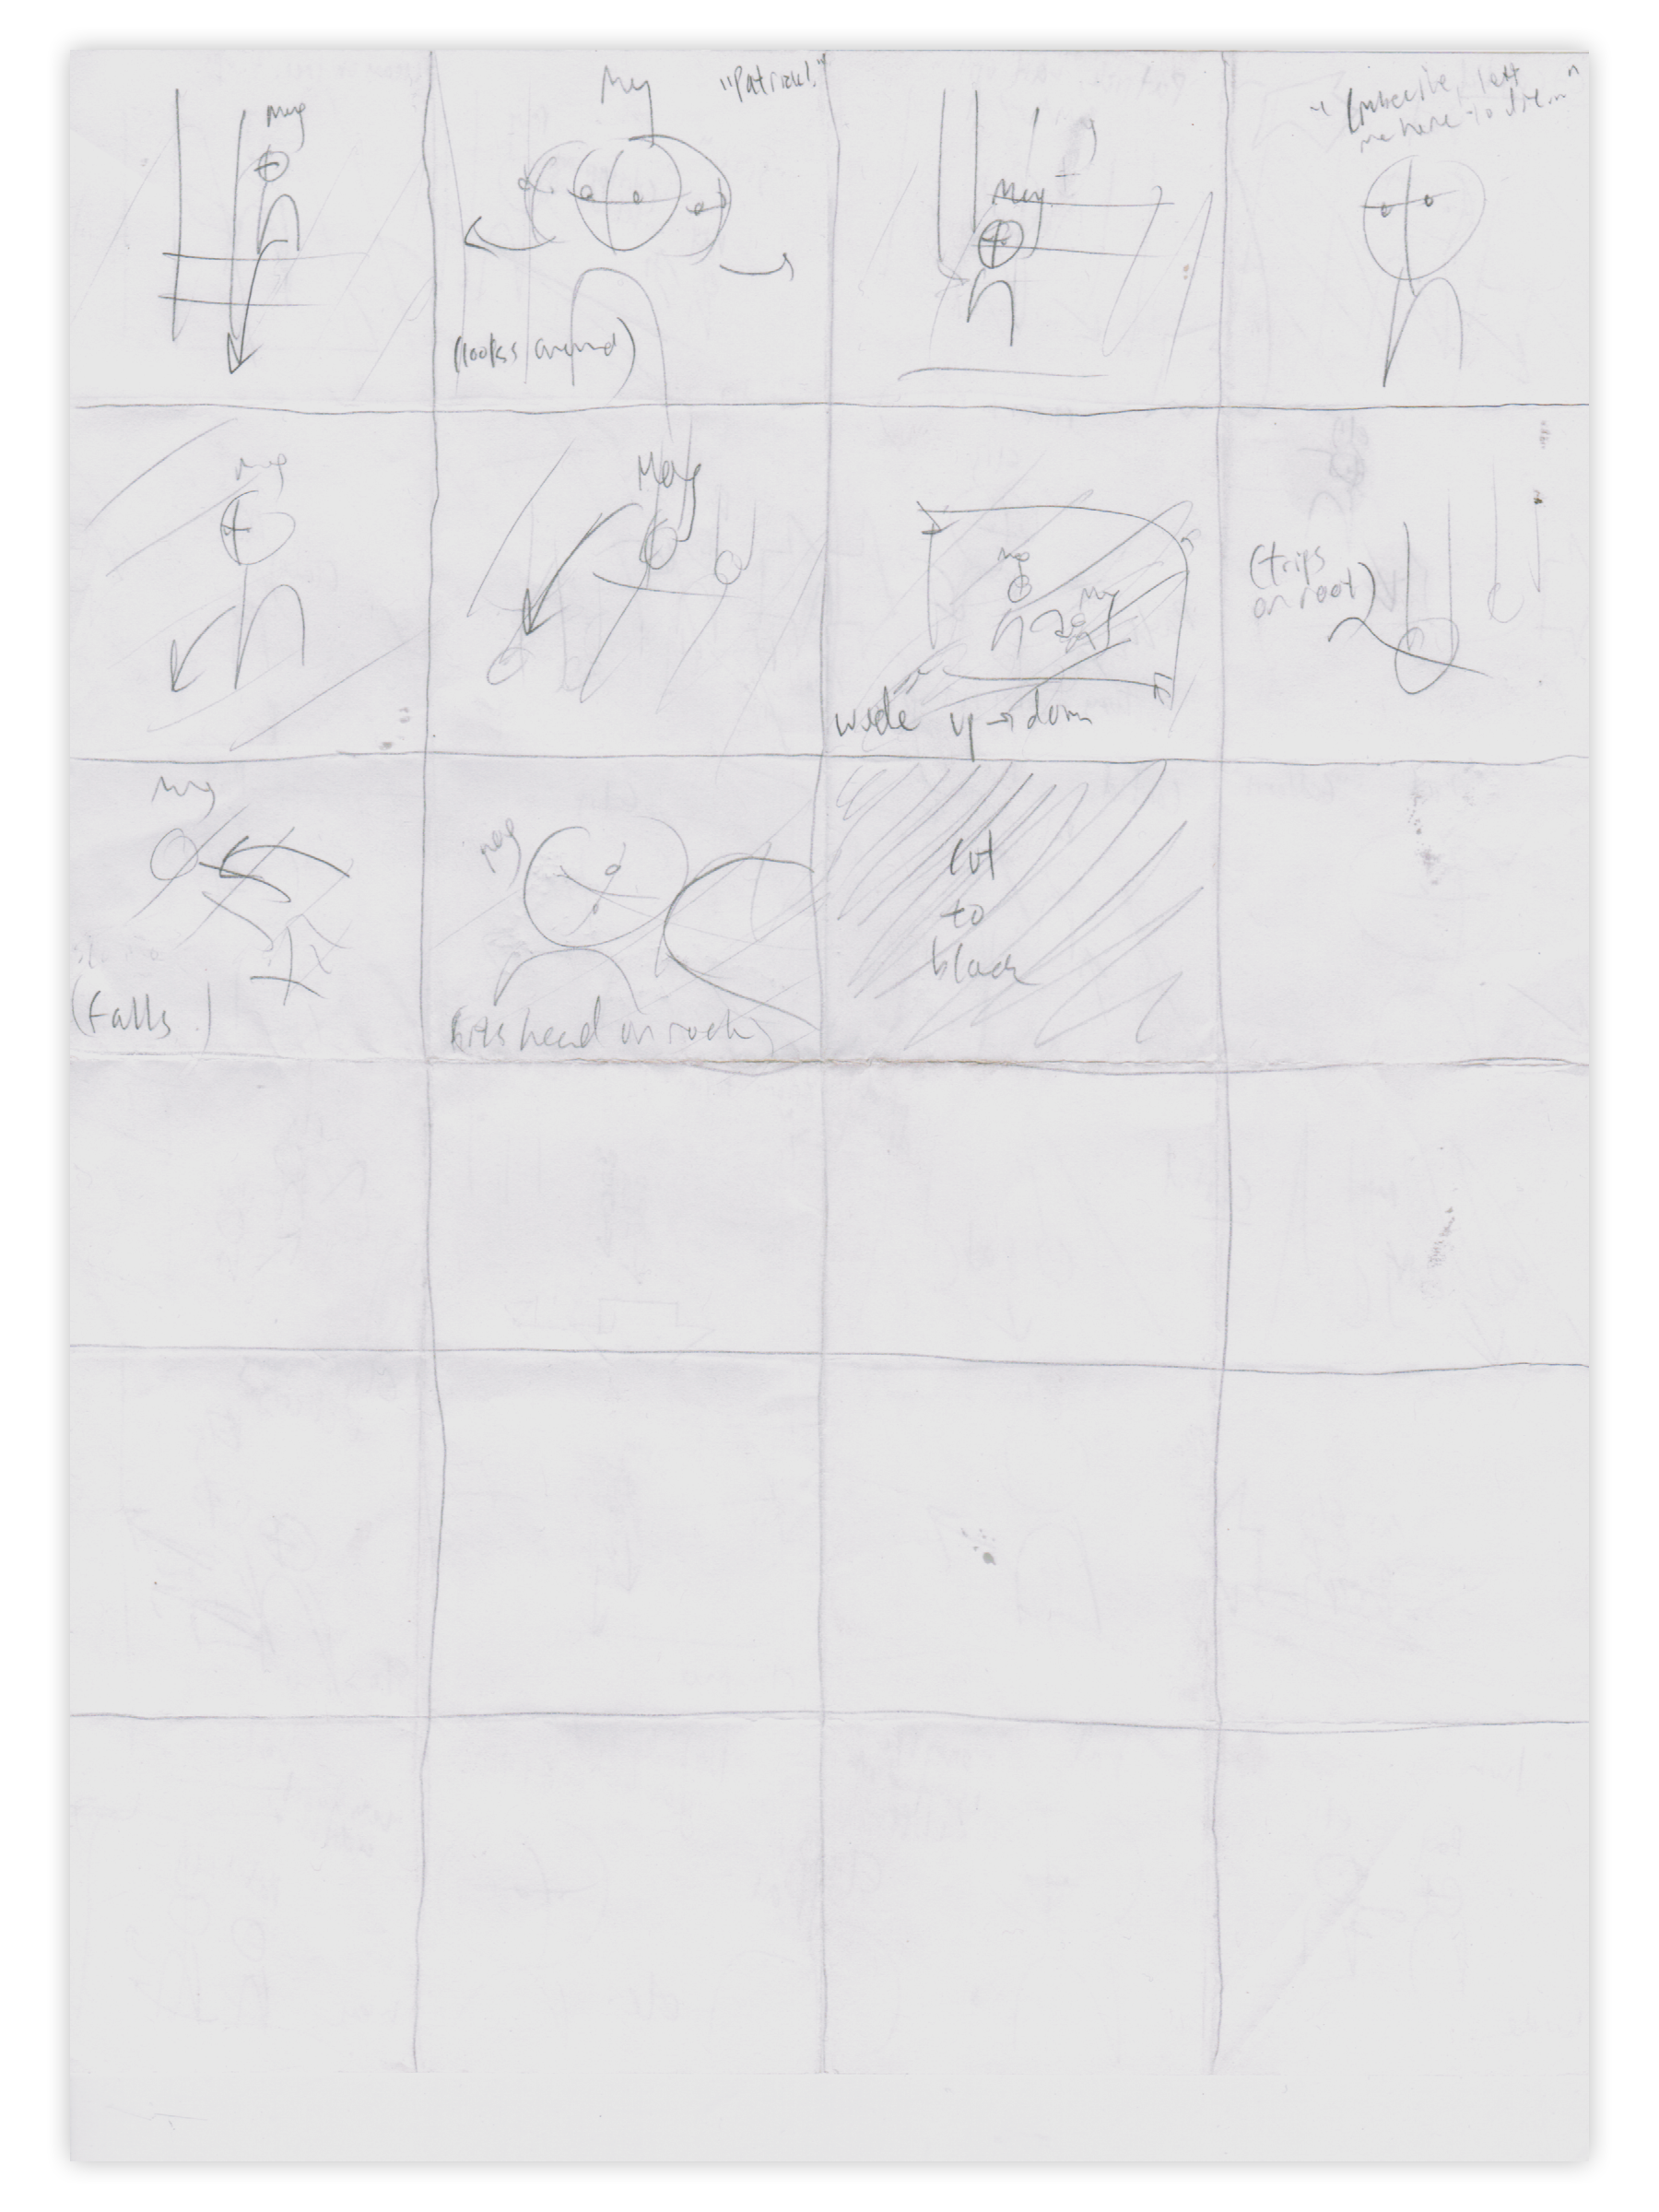 Meg
Meg
"Patrick!"
(looks around)
Meg
"Imbecile, left
me here to die..."
Meg
Meg
Meg
Meg
wide up → down
(trips
on root)
Meg
(falls)
Meg
hits head on rock
cut
to
black